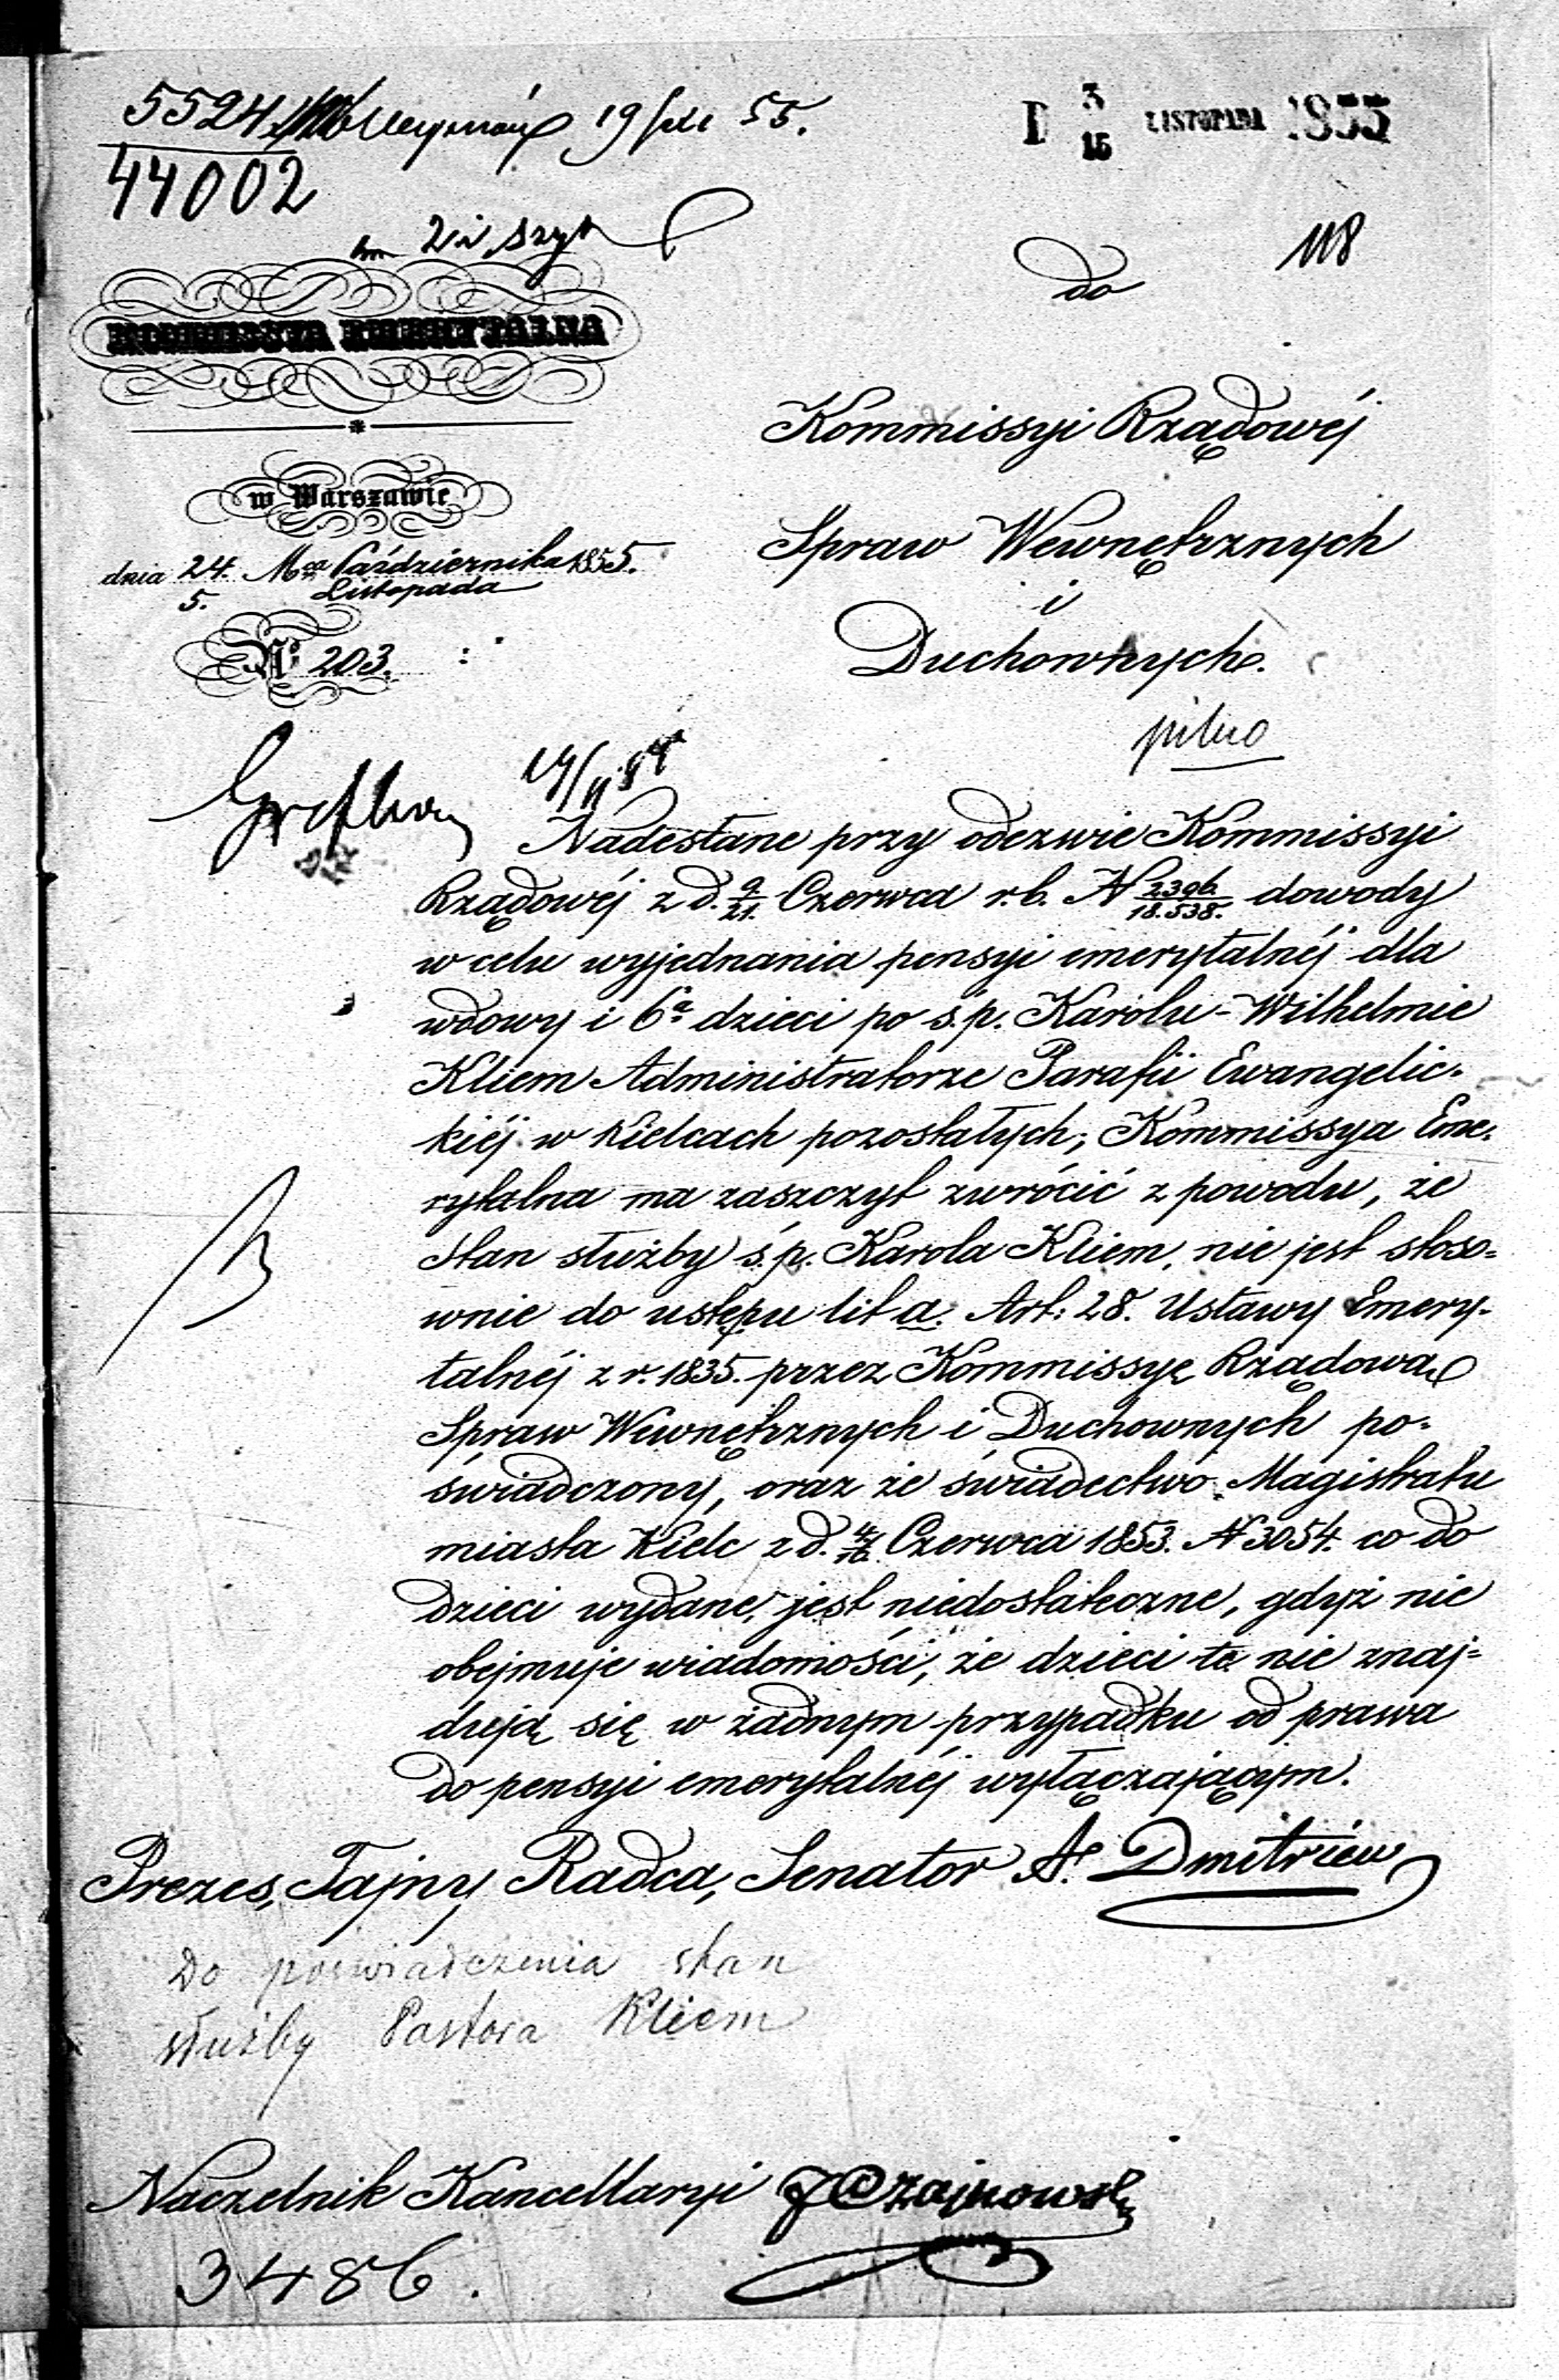 5524
19 55.
D 3/15 LISTOPADA 1855
44002
118
do
KOMMISSYA EMERYTALNA
Kommissyi Rządowéj
w Warszawie
Spraw Wewnętrznych
dnia 24. Mca Października 1855.
5. Listopada
i
No 203.
Duchownych.
pilno
Nadesłane przy odezwie Kommissyi
Rządowéj z d. 9/21. Czerwca r. b. N 2396/18.538. dowody
w celu wyjednania pensyi emerytalnéj dla
wdowy i 6a dzieci po ś. p. Karolu-Wilhelmie
Kliem Administratorze Parafii Ewangelic-
kiéj w Kielcach pozostałych, Kommissya Eme-
rytalna ma zaszczyt zwrócić z powodu, że
stan służby ś. p. Karola Kliem, nie jest stoso-
wnie do ustępu lit a. Art: 28. Ustawy Emery-
talnéj z r. 1835. przez Kommissyę Rządową
Spraw Wewnętrznych i Duchownych po-
świadczony, oraz że świadectwo Magistratu
miasta Kielc z d. 4/16 Czerwca 1853. N 3054. co do
dzieci wydane, jest niedostateczne, gdyż nie
obejmuje wiadomości, że dzieci te nie znaj-
dują się w żadnym przypadku od prawa
do pensyi emerytalnéj wyłączającym.
Prezes, Tajny Radca, Senator A. Dmitriew
Do poświadczenia stan
służby Pastora Kliem
Naczelnik Kancellaryi J Czajkowski
3486.